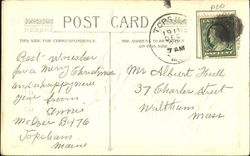 POST CARD
THIS SIDE FOR CORRESPONDENCE.
THE ADDRESS TO BE WRITTEN ON THIS SIDE
TOPS
7 AM
Best wishes
for a Merry Christmas
and a happy new
Year from
Annie
Box 176
Topsham
Maine
Mr Albert Hull
37 Charles Street
Waltham
Mass